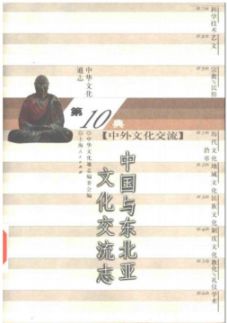 中华文化
通志
第10典
【中外文化交流】
中国与东北亚
文化交流志
中华文化通志编委会编
上海人民出版社
科学技术
艺文
宗教与民俗
历代文化沿革
地域文化
民族文化
制度文化
教化与礼仪
学术